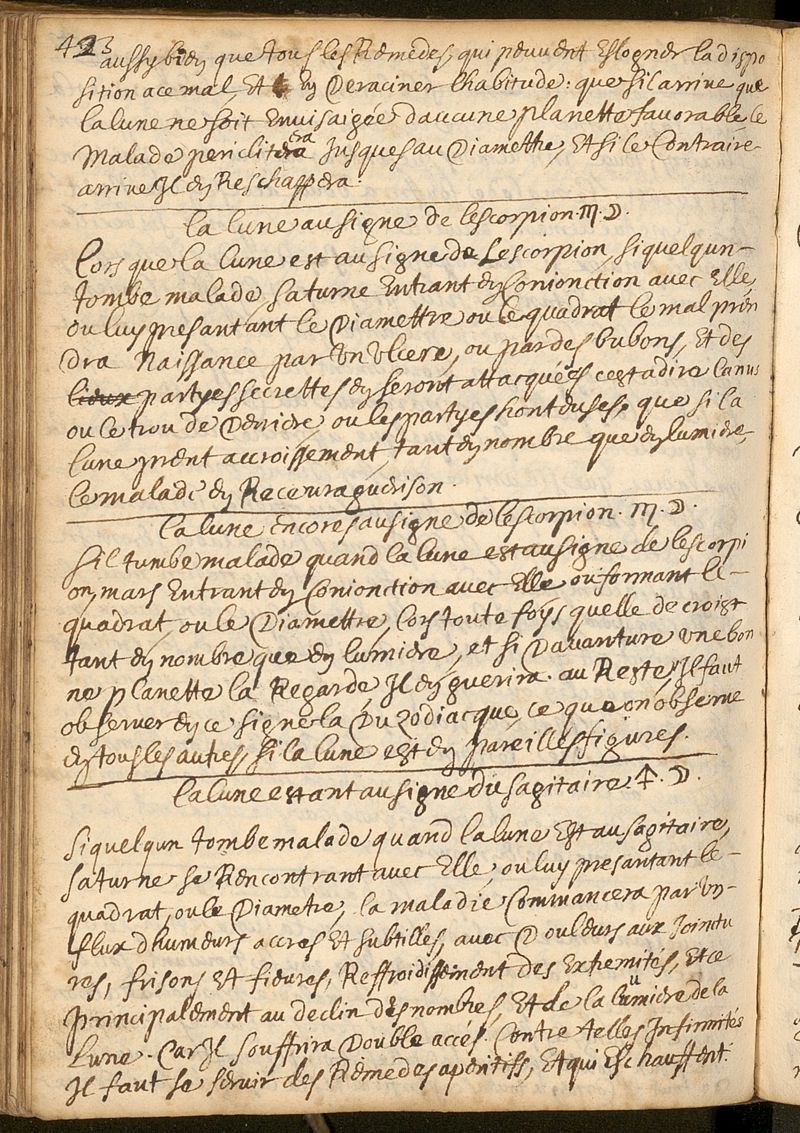 423
aussy bien que tous les Remedes, qui peuvent Eslogner la dispo
sition a ce mal, Et en Deraciner lhabitude: que sil arrive que
la lune ne soit Envisaigée daucune planette favorable, le
Malade periclitera Jusques au Diamettre, Et si le Contraire
arrive Jl en Reschappera.
la lune au signe de lescorpion. ♏. ☽.
Lors que la lune est au signe de Lescorpion, si quelqun
tombe malade, saturne Entrant en Conionction avec Elle,
ou luy presantant le Diamettre ou le quadrat le mal pren
dra Naissance par un Ulcere, ou par des bubons, Et des
lieux partyes secrettes en seront attacquées cest a dire lanus
ou le trou de Derriere, ou les partyes honteuses, que si la
lune prent accroissement, tant en nombre que en lumiere,
le malade en Recevra guerison.
la lune encores au signe de lescorpion. ♏. ☽.
Sil tumbe malade quand la lune est au signe de lescorpi
on, mars Entrant en Conionction avec Elle ou formant le
quadrat, ou le Diamettre, lors toute foys quelle decroist
tant en nombre que en lumiere, et si Davanture une bon
ne planette la Regarde, Jl en guerira. au Reste, Jl faut
observer en ce signe la Du zodiacque, ce que on observe
en tous les autres, si la lune est en pareilles figures.
la lune estant au signe du sagitaire. ♐. ☽.
Si quelqun tombe malade quand la lune Est au sagitaire,
saturne se Rencontrant avec Elle, ou luy presantant le
quadrat, ou le Diametre, la maladie Commancera par un
flux dhumeurs accres Et subtilles, avec Douleurs aux Jointu
res, frisons Et fievres, Reffroidissement des Extremités, Et ce
principalement au declin des nombres, Et de la lumiere de la
Lune. Car Jl souffrira Double accés. Contre telles Infirmités
Jl faut se servir des Remedes aperitifs, Et qui Eschauffent.